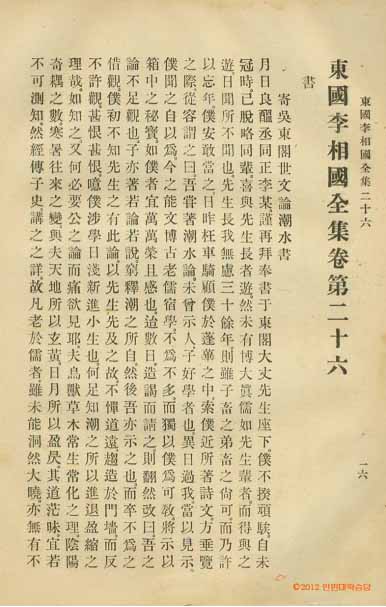 東國李相國全集二十六
一六
東國李相國全集卷第二十六
書
寄吳東閣世文論潮水書
月日良醞丞同正李某謹再拜奉書于東閣大丈先生座下僕不揆頑騃自未
冠時已脫略同輩喜與先生長者遊然未有博大眞儒如先生輩者而得與之
遊日聞所不聞也先生長我無慮三十餘年則雖子畜之弟畜之尙可而乃許
以忘年僕安敢當之日昨枉車騎顧僕於蓬蓽之中索僕近所著詩文方垂覽
之際從容謂之曰吾嘗著潮水論未曾示人子好學者也異日過我當以見示
僕聞之自以爲今之能文博古老儒宿學不爲不多而獨以僕爲可敎將示以
箱中之秘寶如僕者宜萬萬榮且感也造數日造謁而請之則翻然改曰吾之
論不足觀也子亦著若論若說窮釋潮之所自然後吾亦示之也而卒不爲之
借觀僕初不知先生之有此論以先生先及之故不憚道遠趨造於門墻而反
不許觀甚恨甚恨噫僕涉學日淺新進小生也何足知潮之所以進退盈縮之
理哉如知之又何必要公之論而痛欲見耶夫鳥獸草木常生常化之理陰陽
奇耦之數寒暑往來之變與夫天地所以玄黃日月所以盈昃其道茫昧宜若
不可測知然經傳子史講之之詳故凡老於儒者雖未能洞然大曉亦無有不
©2012 민민대학습당